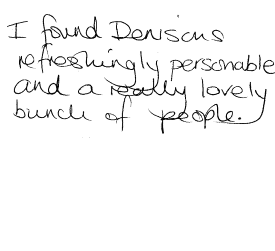 I found Denisons
refreshingly personable
and a really lovely
bunch of people.